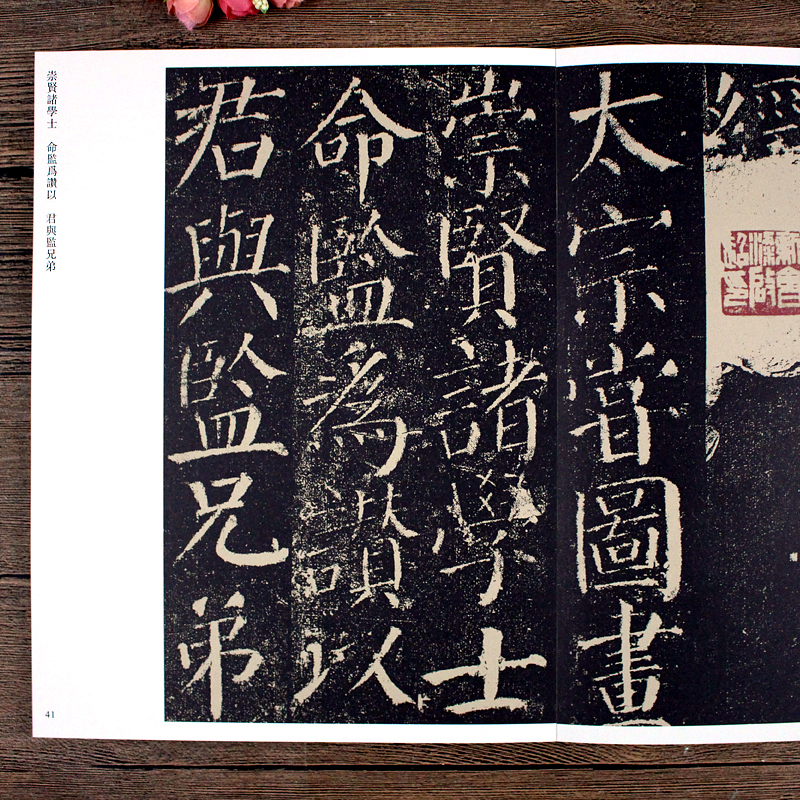 經
太宗嘗圖畫
崇賢諸學士
命監爲讃以
君與監兄弟
崇賢諸學士 命監爲讃以 君與監兄弟
41